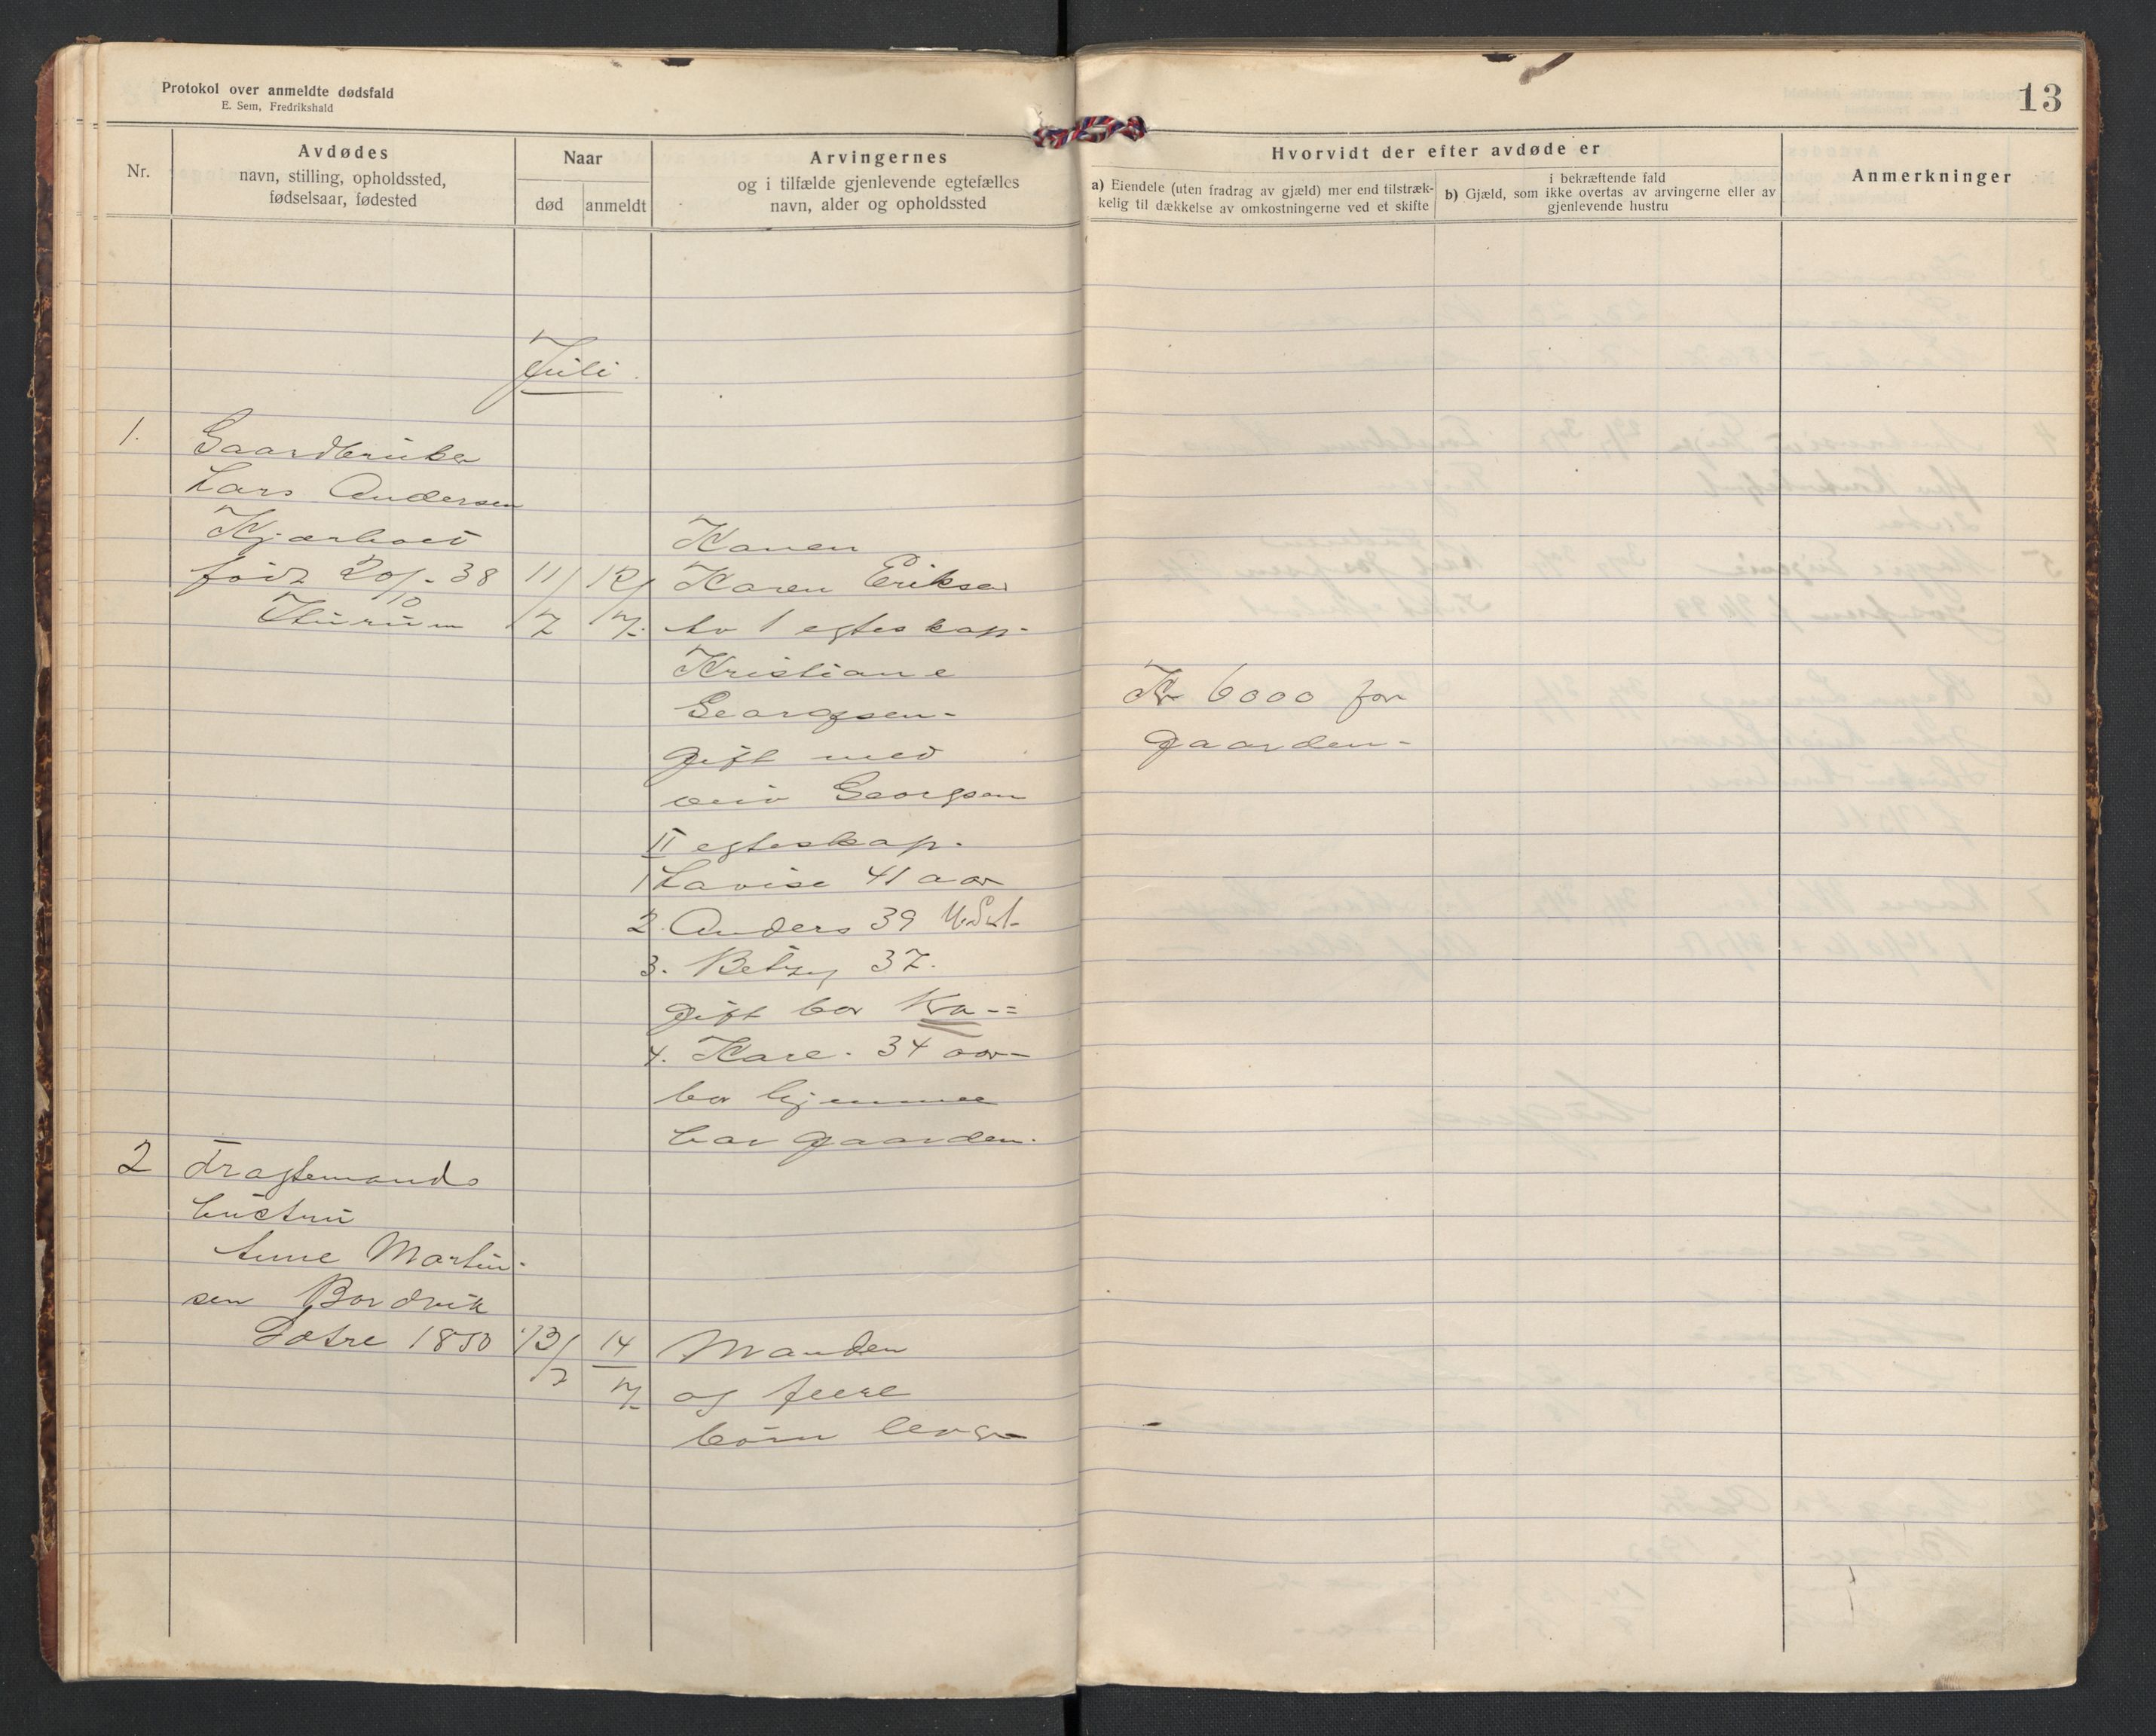 Protokol over anmeldte dødsfald
E. Sem, Fredrikshald
13
Nr.
Avdødes
navn, stilling, opholdssted,
fødselsaar, fødested
Naar
død
anmeldt
Arvingernes
og i tilfælde gjenlevende egtefælles
navn, alder og opholdssted
Hvorvidt der efter avdøde er
a) Eiendele (uten fradrag av gjæld) mer end tilstræk-
kelig til dækkelse av omkostningerne ved et skifte
i bekræftende fald
b) Gjæld, som ikke overtas av arvingerne eller av
gjenlevende hustru
Anmerkninger
Juli
1.
Gaardbruker
Lars Andersen
født 20/10 - 38
Hurum
11/7
12/7
Konen
Karen Eriksen
av 1 egteskap-
Kristiane
Georgsen-
gift med
Georgsen
II egteskap.
1 Lovise 41 aar
2. Anders 39
3. Betzy 37.
gift bor Kra-
4. Kare. 34 aar-
bor hjemme
har gaarden.
Kr 6000 for
gaarden-
2
Fragtemands
hustru
Anne Martin-
sen Bordvik
Sætre 1850
13/7
14/7
Manden
og flere
børn lever